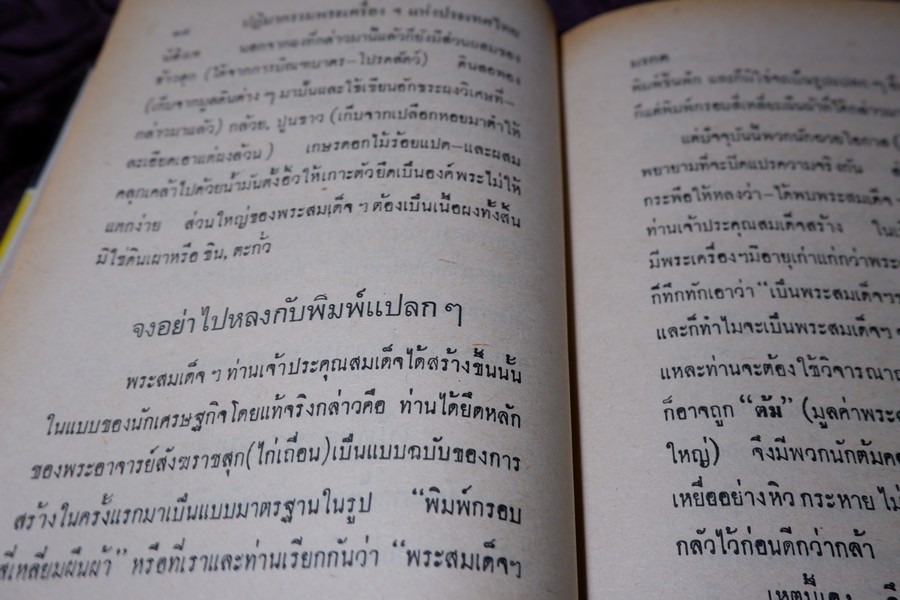 ๑๘ ปฏิมากรรมพระเครื่อง ฯ แห่งประเทศไทย
นอกจากองค์กล่าวมานี้แล้วก็ยังมีส่วนผสมของ
ข้าวสุก (ได้จากการบิณฑบาตร–โปรดสัตว์) ดินสอพอง
(เก็บจากมูลดินต่าง ๆ มาปั้นและใช้เขียนอักขระผงวิเศษที่–
กล่าวมาแล้ว) กล้วย, ปูนขาว (เก็บจากเปลือกหอยมาตำให้
ละเอียดเอาแต่ผงล้วน) เกษรดอกไม้ร้อยแปด–และผสม
คลุกเคล้าไปด้วยน้ำมันตั้งอิ้วให้เกาะตัวยึดเป็นองค์พระไม่ให้
แตกง่าย ส่วนใหญ่ของพระสมเด็จ ฯ ต้องเป็นเนื้อผงทั้งสิ้น
มิใช่ดินเผาหรือ ชิน, ตะกั่ว
จงอย่าไปหลงกับพิมพ์แปลก ๆ
พระสมเด็จ ฯ ท่านเจ้าประคุณสมเด็จได้สร้างขึ้นนั้น
ในแบบของนักเศรษฐกิจโดยแท้จริงกล่าวคือ ท่านได้ยึดหลัก
ของพระอาจารย์สังฆราชสุก(ไก่เถื่อน)เป็นแบบฉบับของการ
สร้างในครั้งแรกมาเป็นแบบมาตรฐานในรูป “พิมพ์กรอบ
สี่เหลี่ยมผืนผ้า” หรือที่เราและท่านเรียกกันว่า “พระสมเด็จฯ
มรดก
พิมพ์ชิ้นฟัก และก็มิใช่จะเป็นรูปแปลก ๆ
ก็แต่พิมพ์กรอบสี่เหลี่ยมผืนผ้าที่ได้กล่าวมา
แต่ปัจจุบันนี้พวกนักฉวยโอกาส
พยายามที่จะบิดแปรความจริงกัน
กระพือให้หลงว่า–ได้พบพระสมเด็จ
ท่านเจ้าประคุณสมเด็จสร้าง
มีพระเครื่องฯมีอายุเก่าแก่กว่าพระ
ก็ทึกทักเอาว่า “เป็นพระสมเด็จฯ
และก็ทำไมจะเป็นพระสมเด็จฯ
แหละท่านจะต้องใช้วิจารณา
ก็อาจถูก “ต้ม” (มูลค่าพระ
ใหญ่) จึงมีพวกนักต้มค
เหยื่ออย่างหิว กระหาย ไม่
กลัวไว้ก่อนดีกว่ากล้า
เหตุนี้เอง